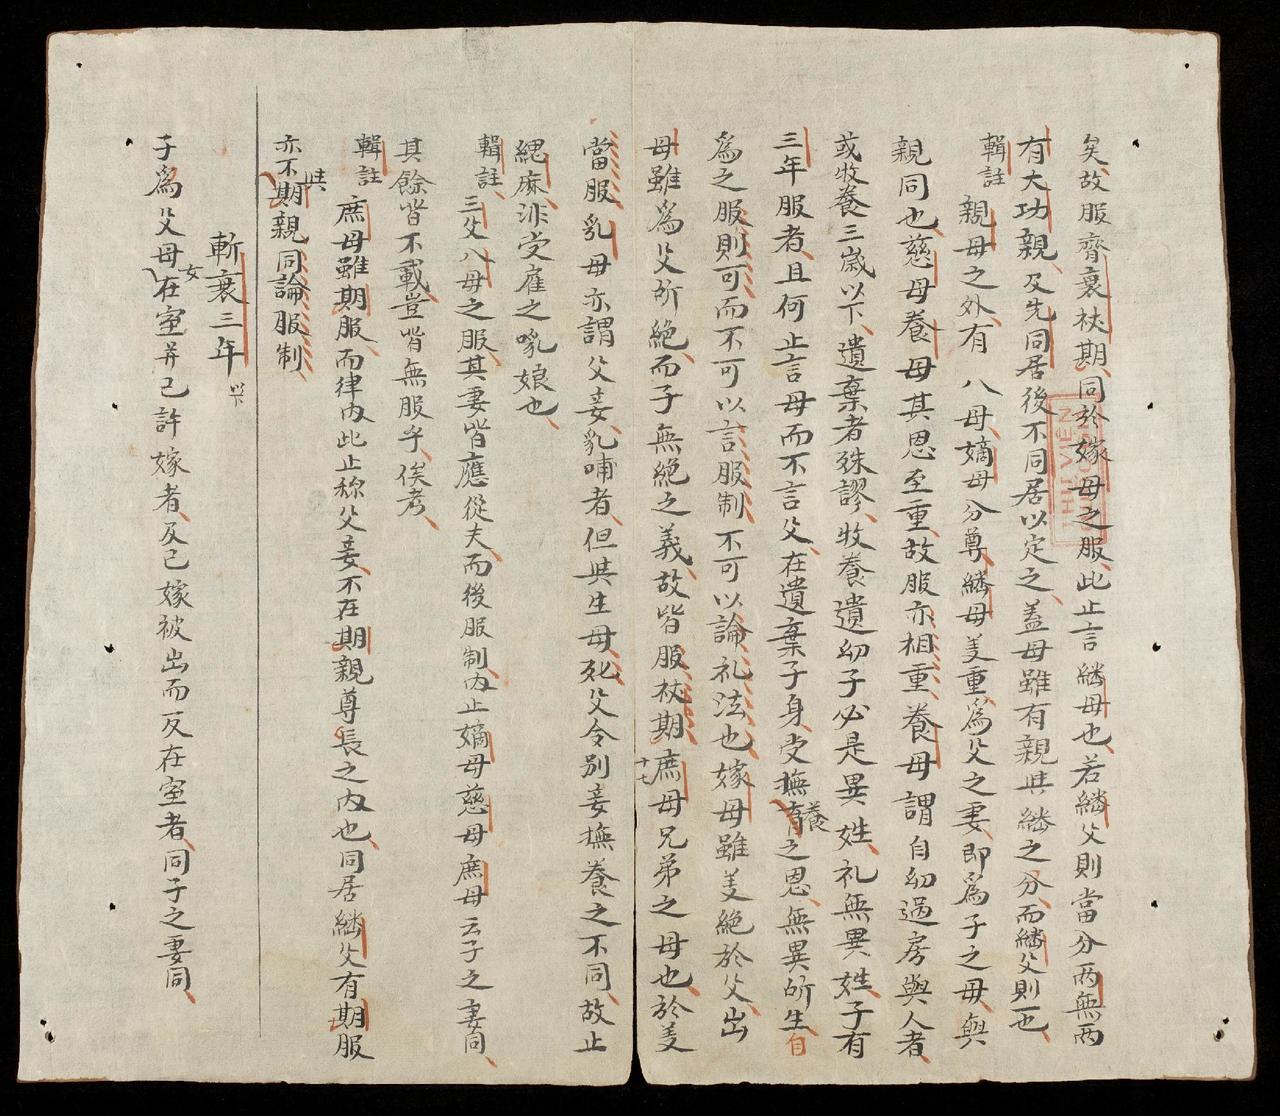 矣故服齊衰杖期同於嫁母之服此止言繼母也若繼父則當分兩無兩
有大功親及先同居後不同居以定之蓋母雖有親與繼之分而繼父則一也
輯註 親母之外有八母嫡母分尊繼母義重爲父之妻即爲子之母與
親同也慈母養母其恩至重故服亦相重養母謂自幼過房與人者
或收養三歲以下遺棄者殊謬收養遺幼子必是異姓礼無異姓子有
三年服者且何止言母而不言父在遺棄子身受撫養之恩無異所生自
爲之服則可而不可以言服制不可以論礼法也嫁母雖義絕於父出
母雖爲父所絕而子無絕之義故皆服杖期庶母兄弟之母也於義
十七
當服乳母亦謂父妾乳哺者但其生母死父令別妾撫養之不同故止
緦麻非受雇之乳娘也
輯註 三父八母之服其妻皆應從夫而後服制內止嫡母慈母庶母云子之妻同
其餘皆不載豈皆無服乎俟考
輯註 庶母雖期服而律內此止称父妾不在期親尊長之內也同居繼父有期服
亦不與期親同論服制
斬衰三年 以下
子爲父母女在室并已許嫁者及已嫁被出而反在室者同子之妻同
THƯ VIỆN